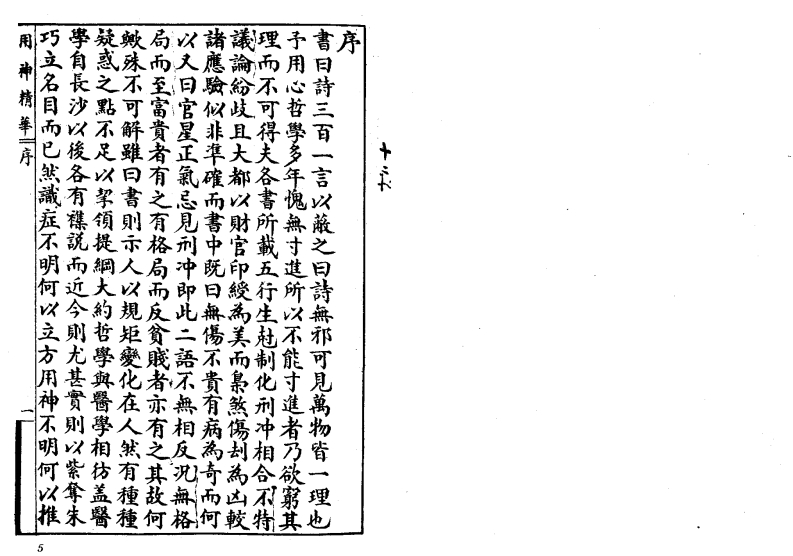 序
書曰詩三百一言以蔽之曰詩無邪可見萬物皆一理也
予用心哲學多年愧無寸進所以不能寸進者乃欲窮其
理而不可得夫各書所載五行生尅制化刑冲相合不特
議論紛歧且大都以財官印綬為美而梟煞傷刦為凶較
諸應驗似非準確而書中既曰無傷不貴有病為奇而何
以又曰官星正氣忌見刑冲即此二語不無相反况無格
局而至富貴者有之有格局而反貧賤者亦有之其故何
歟殊不可解雖曰書則示人以規矩變化在人然有種種
疑惑之點不足以挈領提綱大約哲學與醫學相彷盖醫
學自長沙以後各有襍說而近今則尤甚實則以紫奪朱
巧立名目而已然識症不明何以立方用神不明何以推
用神精華 序 一
5